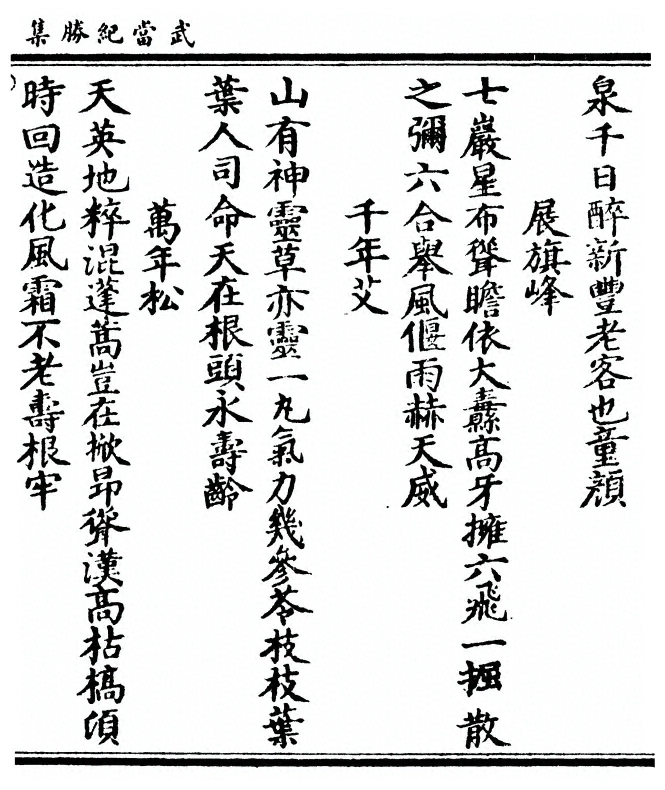 武當紀勝集
泉千日醉新豐老客也童顏
展旗峰
七巖星布聳瞻依大纛高牙擁六飛一掘散
之彌六合舉風偃雨赫天威
千年艾
山有神靈草亦靈一丸氣力幾參苓枝枝葉
葉人司命天在根頭永壽齡
萬年松
天英地粹混蓬蒿豈在掀昂聳漢高枯槁須
時回造化風霜不老壽根牢